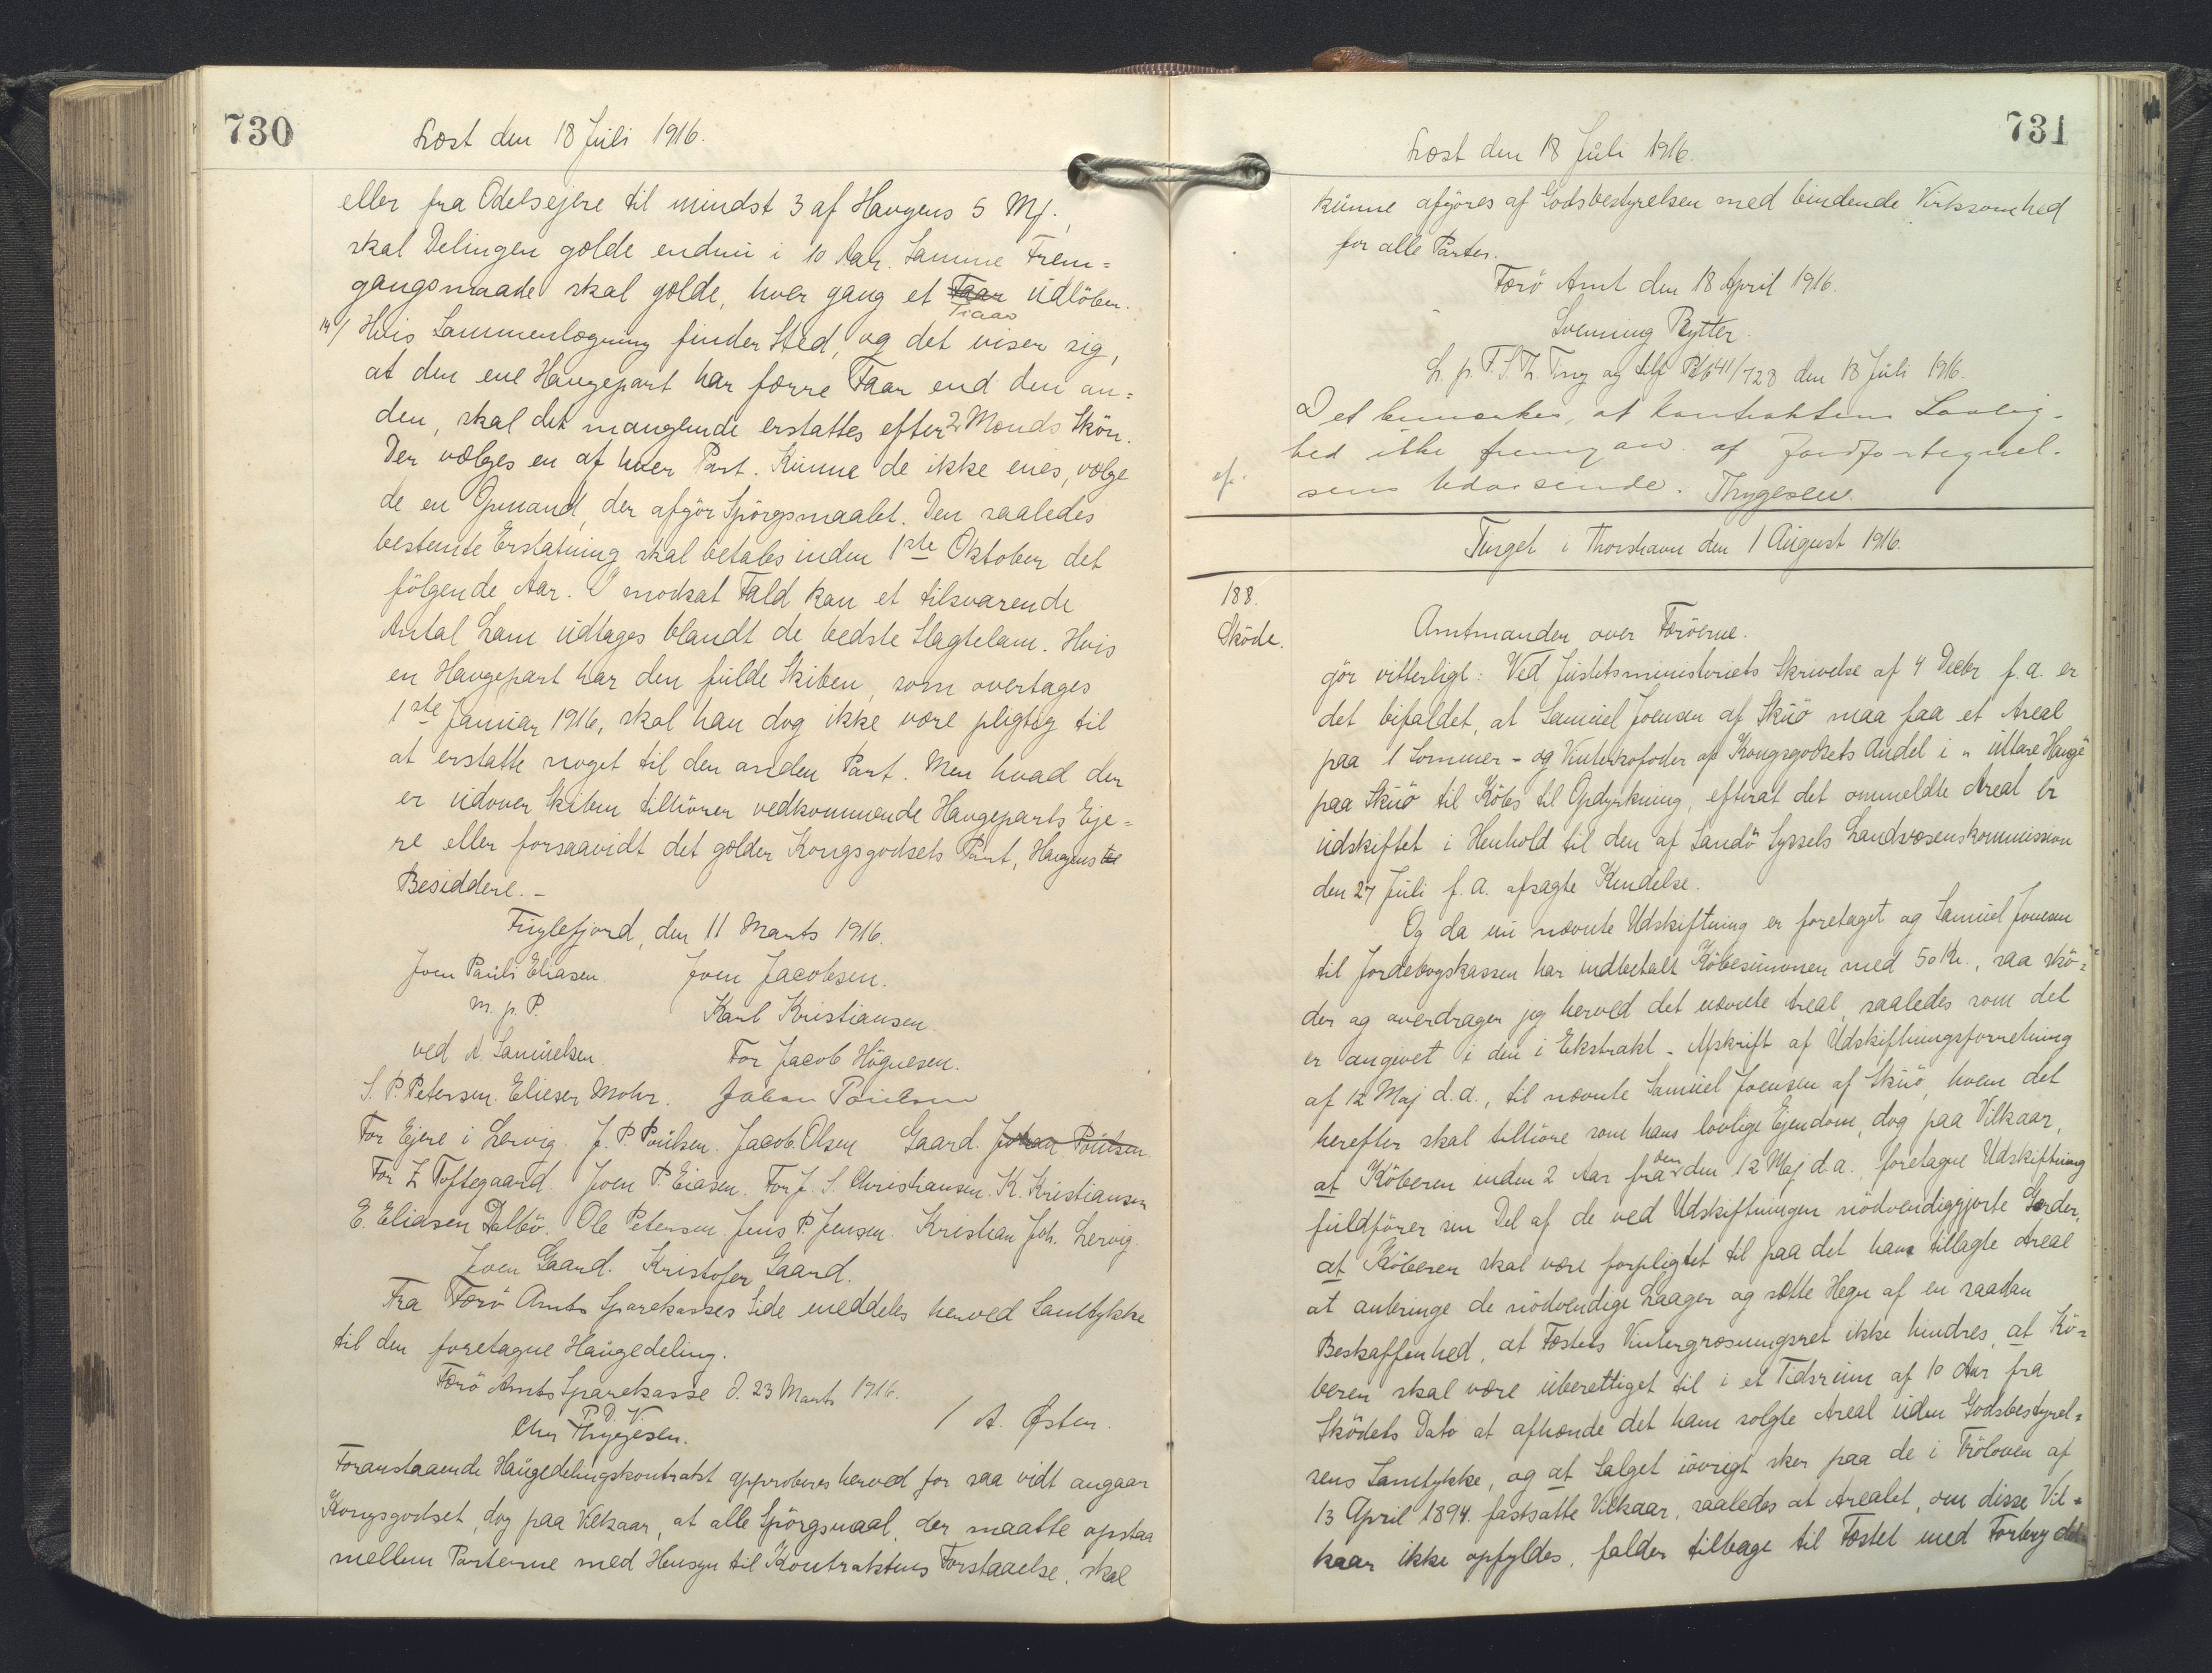 730
Læst den 18 Juli 1916.
eller fra Odelsejere til mindst 3 af Haugens 5 Mk.,
skal Delingen gælde endnu i 10 Aar. Samme Frem=
gangsmaade skal gælde, hver gang et Faar udlöber.
Tiaar
14/ Hvis Sammenlægning finder Sted, og det viser sig,
at den ene Haugepart har færre Faar end den an=
den, skal det manglende erstattes efter 2 Mænds Skön.
Der vælges en af hver Part. Kunne de ikke enes, vælge
de en Opmand, der afgör Spörgsmaalet. Den saaledes
bestemte Erstatning skal betales inden 1ste Oktober det
fölgende Aar. I modsat Fald kan et tilsvarende
Antal Lam udtages blandt de bedste Slagtelam. Hvis
en Haugepart har den fulde Skiben, som overtages
1ste Januar 1916, skal han dog ikke være pligtig til
at erstatte noget til den anden Part. Men hvad der
er udover Skiben tilhörer vedkommende Haugeparts Eje=
re eller forsaavidt det gælder Kongsgodsets Part, Haugens
Besiddere. -
Fuglefjord, den 11 Marts 1916.
Joen Pauli Eliasen. Joen Jacobsen.
m. p. P. Karl Kristiansen.
ved A. Samuelsen. For Jacob Högnesen.
S. P. Petersen. Elieser Mohr. Johan Poulsen
For Ejere i Lervig. J. P. Poulsen. Jacob Olsen Gaard. Johan Poulsen.
For Z Toftegaard. Joen P. Eiasen. For J. S. Christiansen. K. Kristiansen
E. Eliasen Dalbö. Ole Petersen. Jens P. Jensen. Kristian Joh. Lervig.
Joen Gaard. Kristofer Gaard.
Fra Færö Amts Sparekasses Side meddeles herved Samtykke
til den foretagne Haugedeling.
Færö Amts Sparekasse d. 23 Marts 1916.
P. D. V.
Chr Thygesen. / A. Østen.
Foranstaaende Haugedelingskontrakt approberes herved for saa vidt angaar
Kongsgodset, dog paa Vilkaar, at alle Spörgsmaal, der maatte opstaa
mellem Parterne med Hensyn til Kontraktens Forstaaelse, skal
731
Læst den 18 Juli 1916.
kunne afgöres af Godsbestyrelsen med bindende Virksomhed
for alle Parter.
Færö Amt den 18 April 1916.
Svenning Rytter.
L. p. F. S. Th. Ting og tilf Pb 41/728 den 18 Juli 1916.
Det bemærkes, at Kontraktens Lovlig-
hed ikke fremgaar af Jordfortegnel-
sens Udvisende. Thygesen.
Tinget i Thorshavn den 1 August 1916.
188.
Sköde.
Amtmanden over Færöerne.
gör vitterligt: Ved Justitsministeriets Skrivelse af 4 Decbr. f. a. er
det bifaldet, at Samuel Joensen af Skuö maa faa et Areal
paa 1 Sommer- og Vinterkofoder af Kongsgodsets Andel i „ uttare Hauge"
paa Skuö til Köbs til Opdyrkning, efterat det ommeldte Areal er
udskiftet i Henhold til den af Sandö Syssels Landvæsenskommission
den 27 Juli f. a. afsagte Kendelse.
Og da nu nævnte Udskiftning er foretaget og Samuel Joensen
til Jordebogskassen har indbetalt Köbesummen med 50 Kr., saa skö=
der og overdrager jeg herved det nævnte Areal, saaledes som det
er angivet i den i Ekstrakt-Afskrift af Udskiftningsforretning
af 12 Maj d. a., til nævnte Samuel Joensen af Skuö, hvem det
herefter skal tilhöre som hans lovlige Ejendom, dog paa Vilkaar,
at Köberen inden 2 Aar fra den den 12 Maj d. a. foretagne Udskiftning
fuldförer sin Del af de ved Udskiftningen nödvendiggjorte Gærder,
at Köberen skal være forpligtet til paa det ham tillagte Areal
at anbringe de nödvendige Laager og sætte Hegn af en saadan
Beskaffenhed, at Fæstets Vintergræsningsret ikke hindres, at Kö=
beren skal være uberettiget til i et Tidsrum af 10 Aar fra
Sködets Dato at afhænde det ham solgte Areal uden Godsbestyrel=
sens Samtykke, og at Salget iövrigt sker paa de i Tröloven af
13 April 1894. fastsatte Vilkaar, saaledes at Arealet, om disse Vil=
kaar ikke opfyldes, falder tilbage til Fæstet med Fortrydel